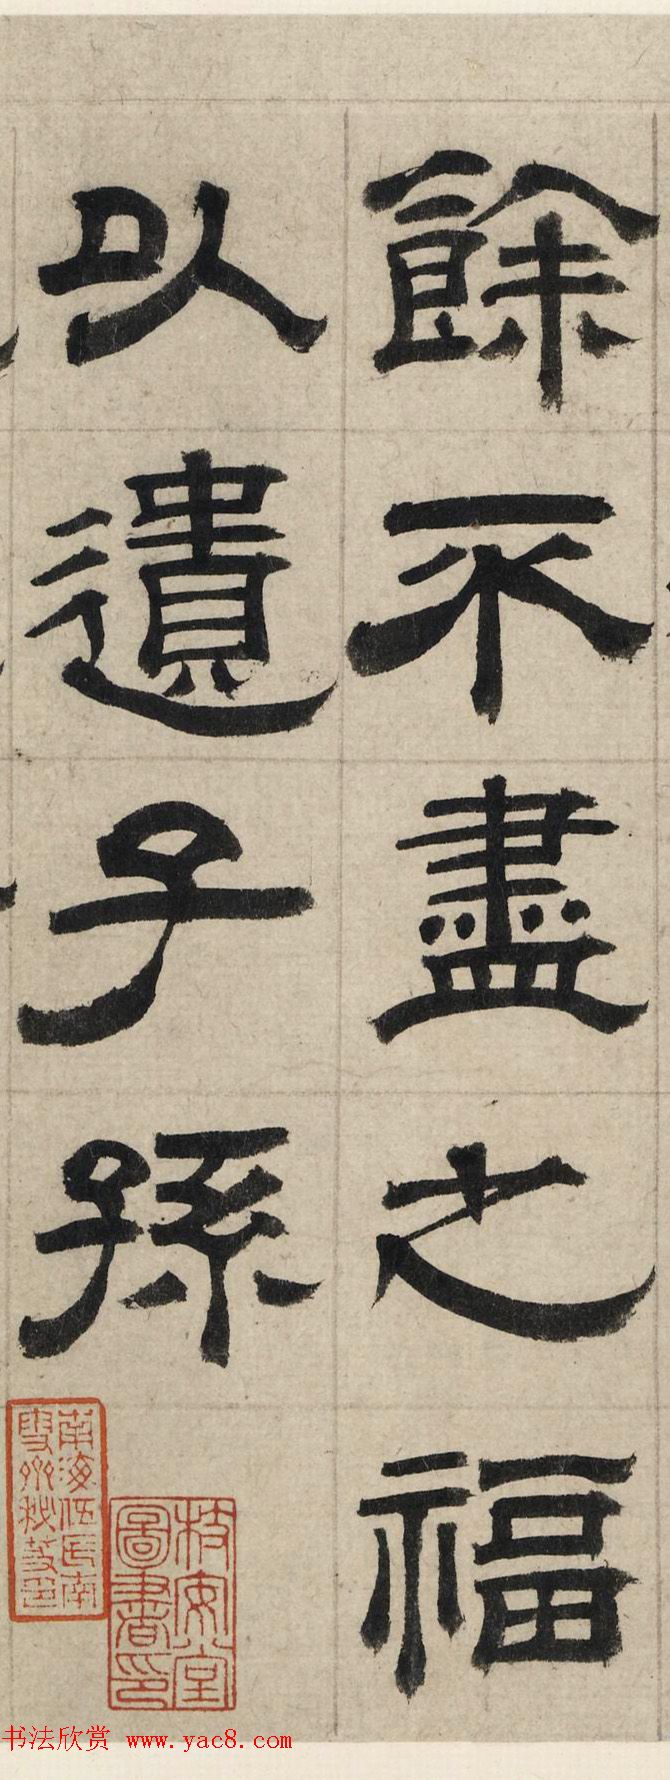 餘不盡之福
以遺子孫
南海伍氏南
雪齋秋萼印
枝安堂
圖書印
书法欣赏 www.yac8.com